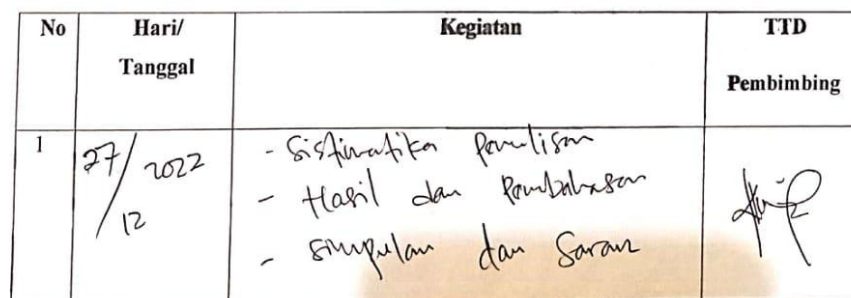 No Hari/ Kegiatan TTD
Tanggal Pembimbing
1 27/12 2022 - Sistimatika penulisan
- Hasil dan Pembahasan
- Simpulan dan Saran